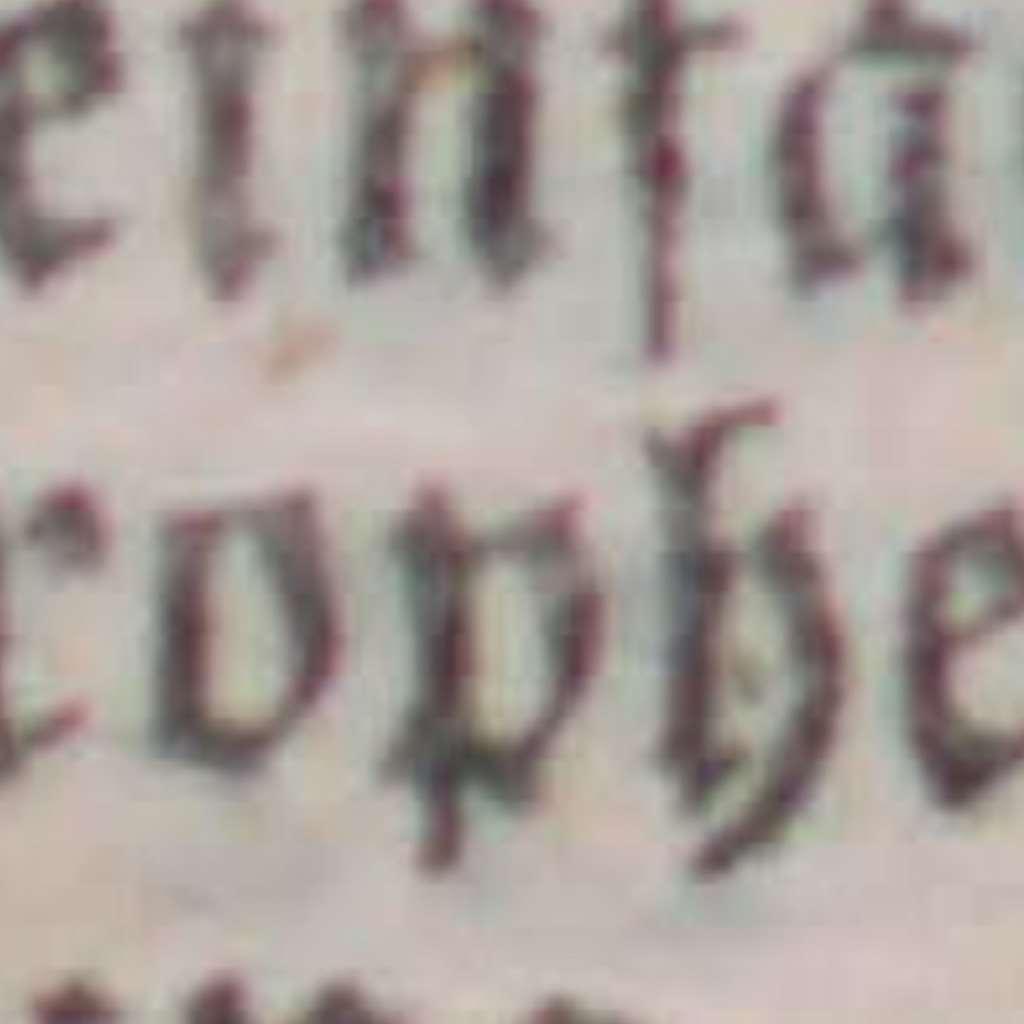 einfa
rophe